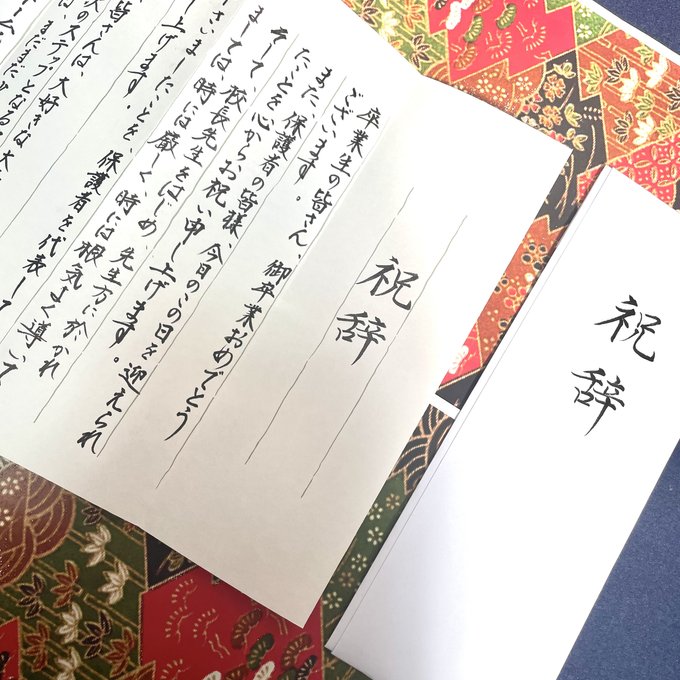 祝辞
祝辞
卒業生の皆さん、御卒業おめでとう
ございます。
また、保護者の皆様、今日のこの日を迎えられ
たことを心からお祝い申し上げます。
そして、校長先生をはじめ、先生方に於かれ
ましては、時には厳しく、時には根気よく導いて
さいましたことを、保護者を代表して
し上げます。
皆さんは、
大好きな
のステップとなる
まだまだ